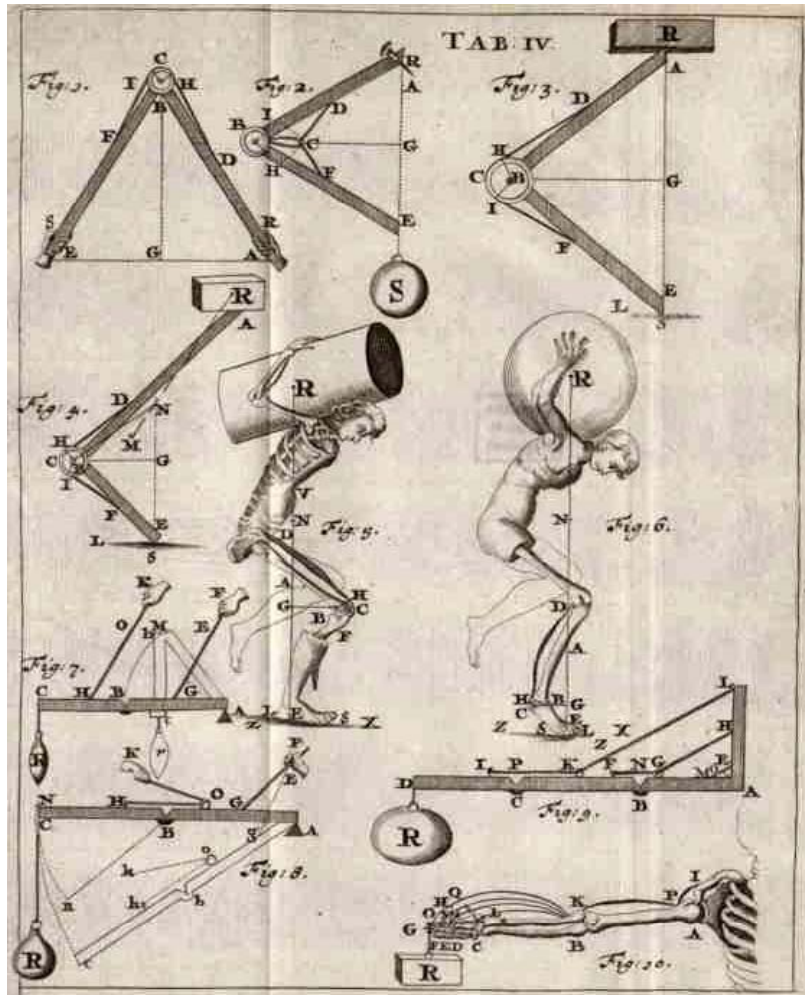 TAB: IV.
Fig: 1.
C
I H
B
F
D
S R
E G A
Fig: 2.
R
A
I D
B
C G
H F
E
S
Fig: 3.
R
A
D
H
C B
G
I
F
E
L
S
Fig: 4.
R
A
D
N
M
H
C
G
I
F
E
L
S
Fig: 5.
R
V
N
D
A
H
G C
B
F
Z L E S X
Fig: 6.
R
N
D
A
H B G
C
E
Z S L X
Fig: 7.
K F
O M E
b
C H B G A
R
P
Fig: 8.
K F
E
O
N H G
C B S A
o
k
n h b
c
R
Fig: 9.
L
H
I P K F N G M E
D A
C B
R
Fig: 10.
I
Q P
H K
O L
G
F E D C B A
R